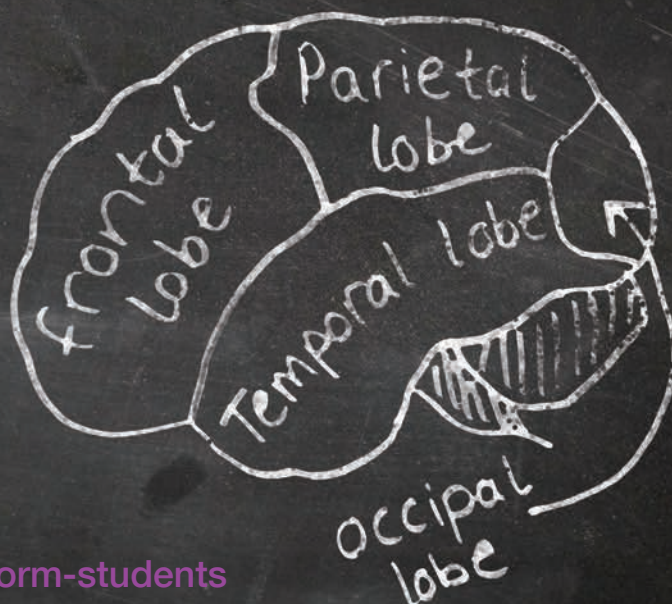 Parietal
lobe
frontal
lobe
Temporal lobe
occipal
lobe
orm-students